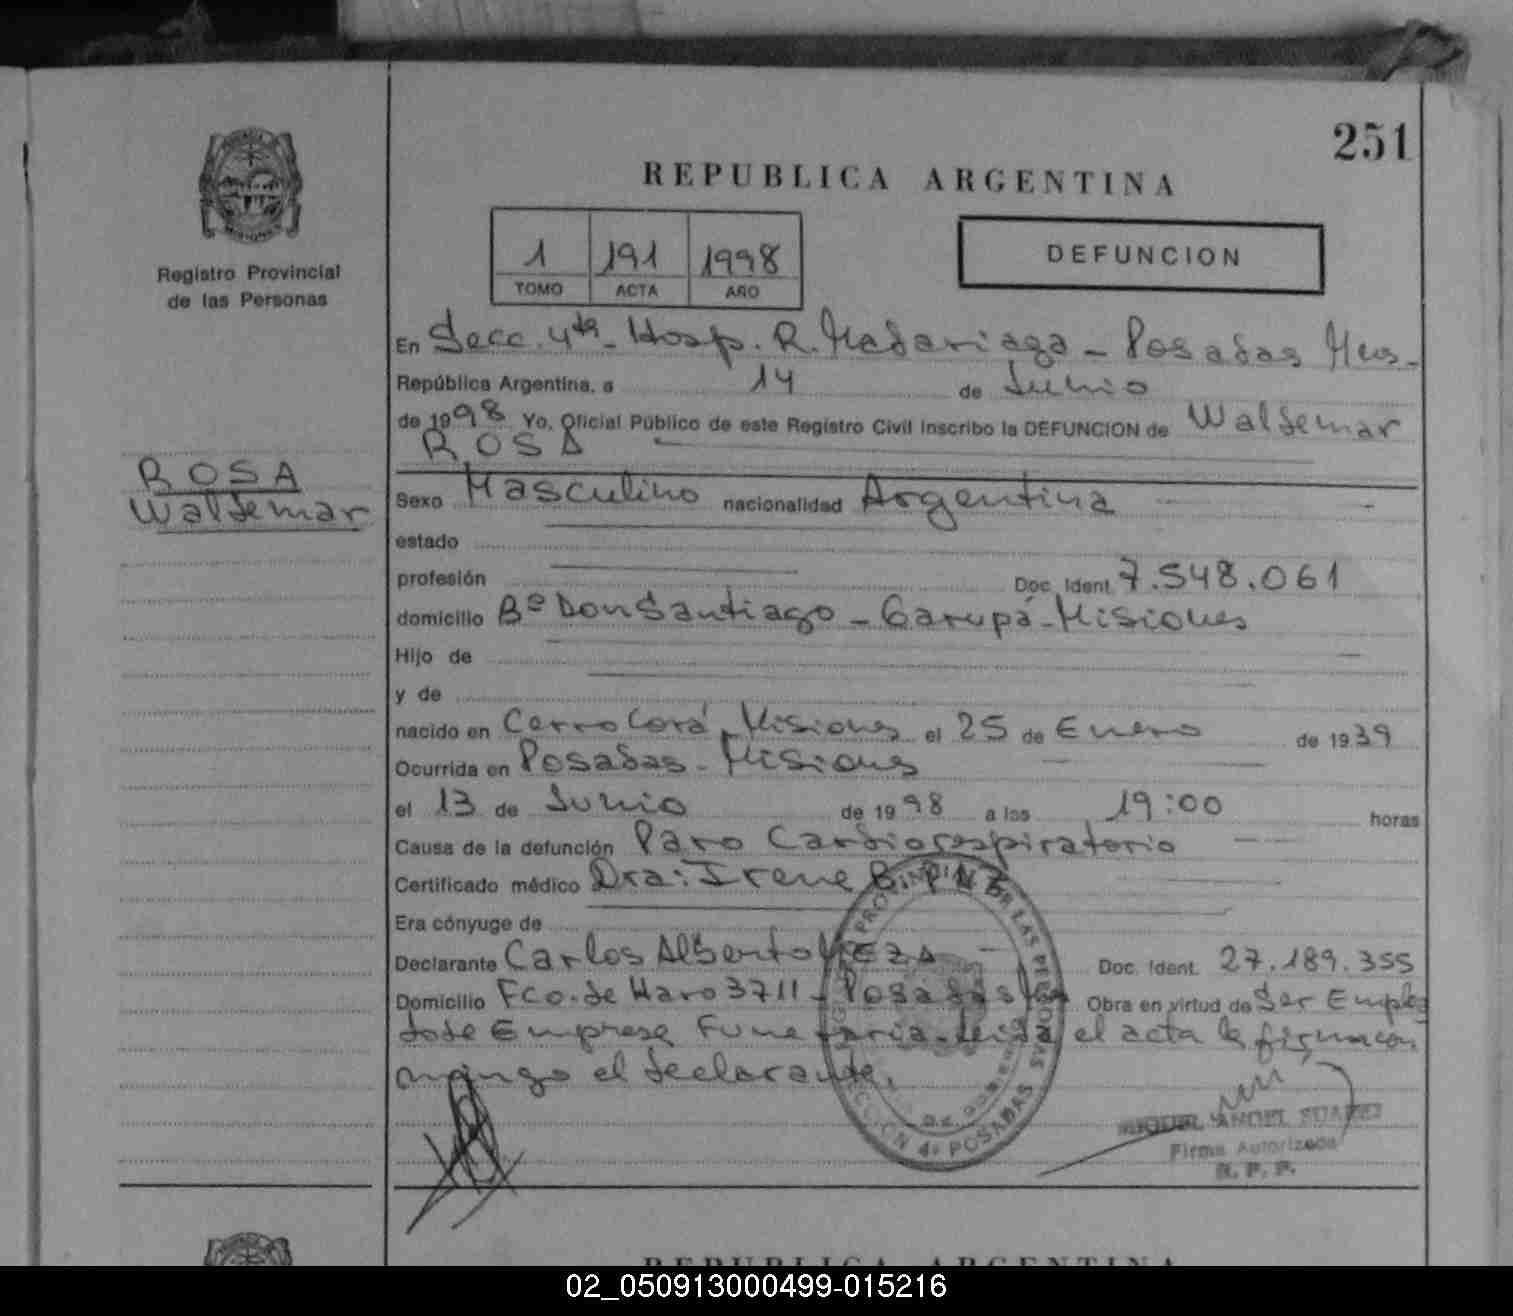 251
REPUBLICA ARGENTINA
Registro Provincial
de las Personas
1 191 1998
TOMO ACTA AÑO
DEFUNCION
En Secc. 4ta - Hosp. R. Madariaga - Posadas Mnes-
República Argentina, a 14 de Junio
de 1998 Yo, Oficial Público de este Registro Civil inscribo la DEFUNCION de Waldemar
ROSA
ROSA
Waldemar
Sexo Masculino nacionalidad Argentina
estado
profesión Doc. Ident. 7.548.061
domicilio Bº Don Santiago - Garupá - Misiones
Hijo de
y de
nacido en Cerro Corá, Misiones el 25 de Enero de 1939
Ocurrida en Posadas - Misiones
el 13 de Junio de 1998 a las 19:00 horas
Causa de la defunción Paro Cardiorespiratorio
Certificado médico Dra: Irene B.
Era cónyuge de
Declarante Carlos Alberto MEZA Doc. Ident. 27.189.355
Domicilio Fco. de Haro 3711 - Posadas Obra en virtud de Ser Emplea
do de Empresa Funeraria. Leida el acta la firma con
migo el declarante.
MIGUEL ANGEL SUAREZ
Firma Autorizada
R. P. P.
DIRECCION de POSADAS
REPUBLICA ARGENTINA
02_050913000499-015216